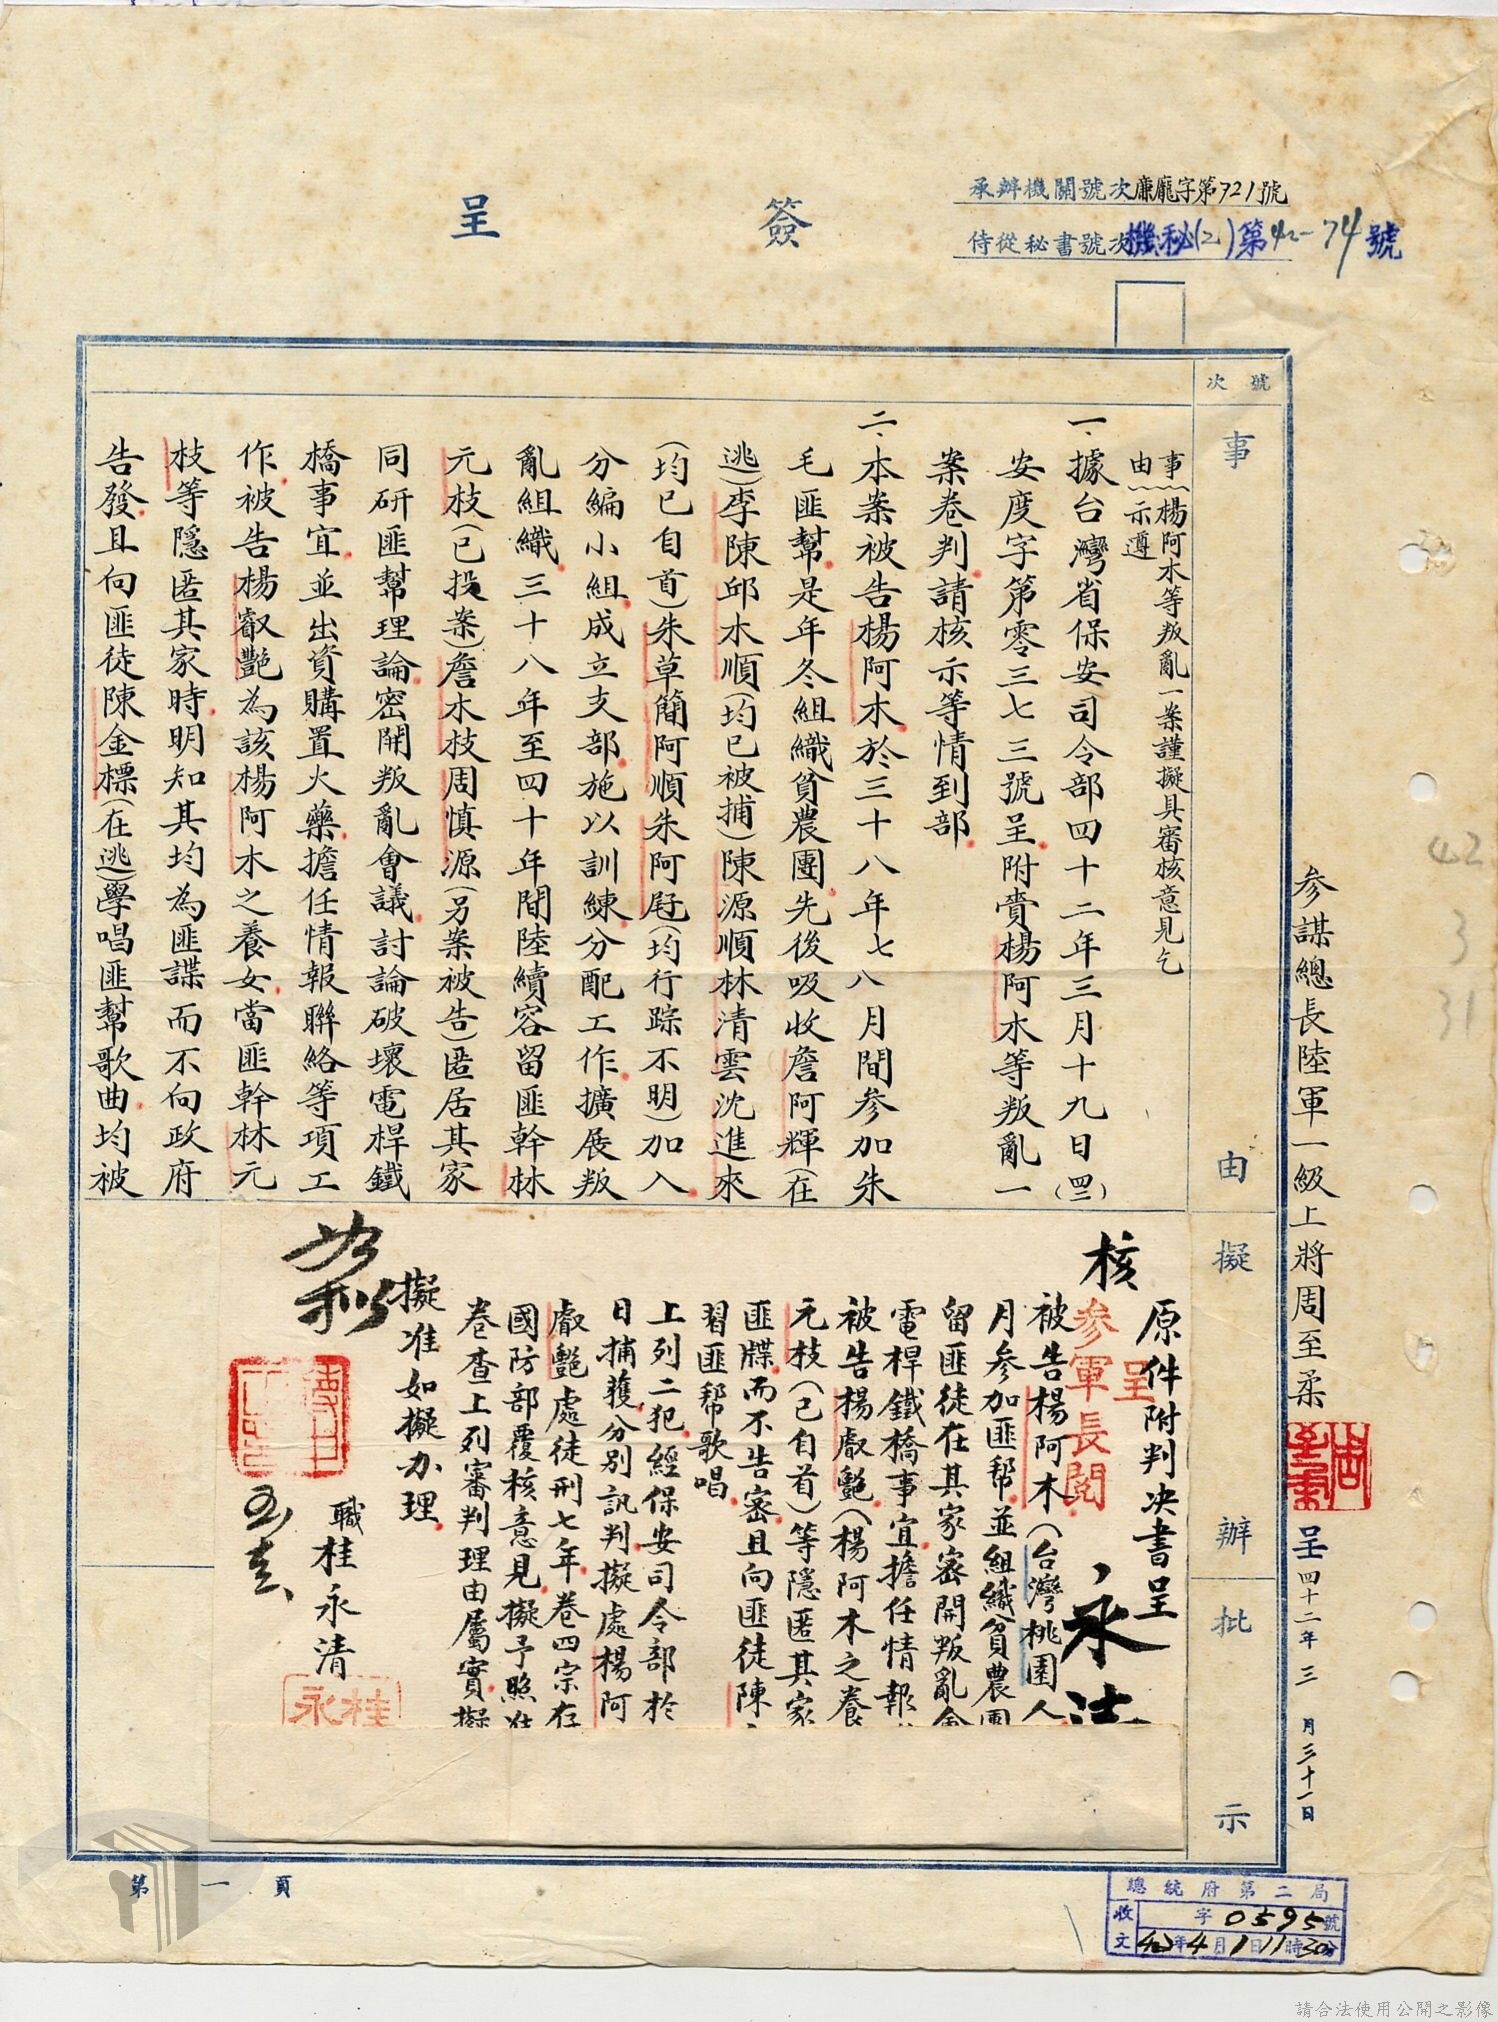 簽呈
承辦機關號次廉龐字第721號
侍從秘書號次機秘(乙)第42-74號
號次
事由
擬辦
批示
參謀總長陸軍一級上將周至柔
呈四十二年三月三十一日
事由：楊阿木等叛亂一案謹擬具審核意見乞
示遵
一、據台灣省保安司令部四十二年三月十九日(四二)
安度字第零三七三號呈附賫楊阿木等叛亂一
案卷判請核示等情到部
二、本案被告楊阿木於三十八年七八月間參加朱
毛匪幫是年冬組織貧農團先後吸收詹阿輝(在
逃)李陳邱木順(均已被捕)陳源順林清雲沈進來
(均已自首)朱草簡阿順朱阿尾(均行踪不明)加入
分編小組成立支部施以訓練分配工作擴展叛
亂組織三十八年至四十年間陸續容留匪幹林
元枝(已投案)詹木枝周慎源(另案被告)匿居其家
同研匪幫理論密開叛亂會議討論破壞電桿鐵
橋事宜並出資購置火藥擔任情報聯絡等項工
作被告楊叡艷為該楊阿木之養女當匪幹林元
枝等隱匿其家時明知其均為匪諜而不向政府
告發且向匪徒陳金標(在逃)學唱匪幫歌曲均被
核
原件附判决書呈
呈
參軍長閱
永清
被告楊阿木(台灣桃園人
月參加匪帮並組織貧農團
留匪徒在其家密開叛亂會
電桿鐵橋事宜擔任情報
被告楊叡艷(楊阿木之養
元枝(已自首)等隱匿其家
匪牒而不告密且向匪徒陳
習匪帮歌唱
上列二犯經保安司令部於
日捕獲分別訊判擬處楊阿
叡艷處徒刑七年卷四宗存
國防部覆核意見擬予照准
卷查上列審判理由屬實擬
擬准如擬办理
職桂永清
桂永
第一頁
總統府第二局
收文
字0595號
42年4月1日11時30分
42
3
31
請合法使用公開之影像